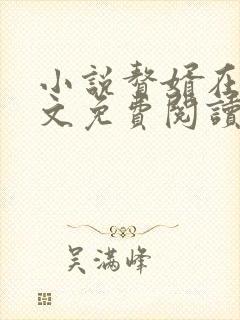 小説贅婿在
文免費閱讀
吴满峰